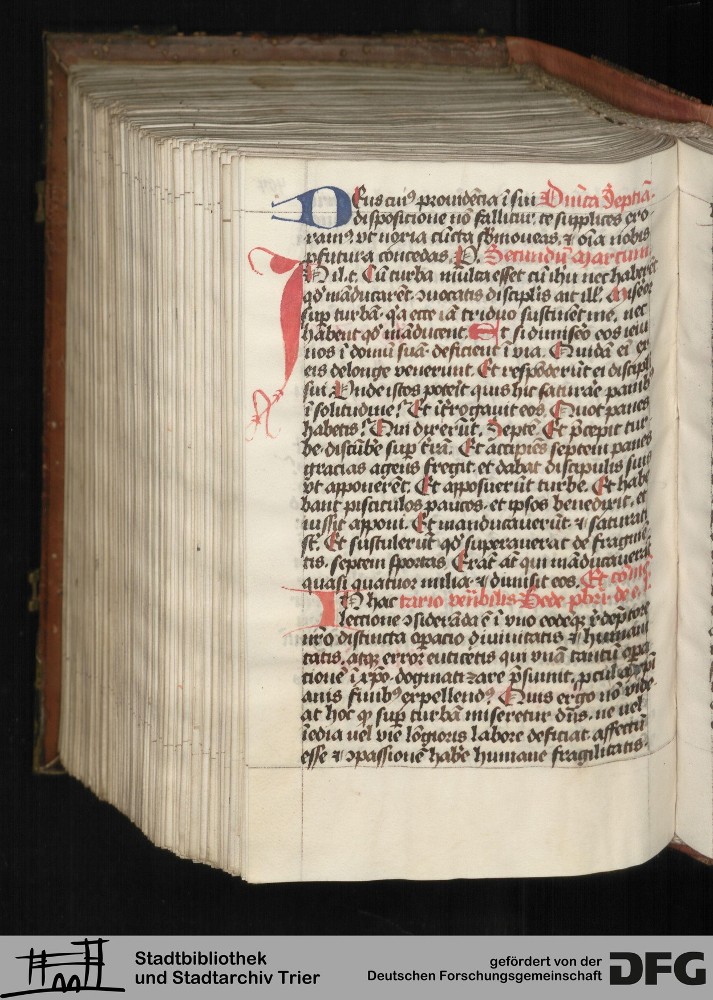 Deus cuiꝰ prouidẽcia ĩ sui Dnĩca Septiã
dispositione nõ fallitur. te supplices exo
ramꝰ. vt noxia cũcta submoueas. ⁊ oĩa nobis
pfutura cõcedas. P. Secundũ Marcum
IN il. t. Cũ turba multa esset cũ ihũ nec haberẽt
qd' mãducarẽt. ↄuocatis disciplis ait ill'. Miseor
sup turbã. q̃a ecce iã triduo sustinẽt me. nec
habent qd' mãducent. Et si dimiseo eos ieiu
nos ĩ domũ suã. deficient ĩ via. Quidã eĩ ex
eis de longe venerunt. Et respõderũt ei discipl'
sui. Vnde istos poterit quis hic saturare panibꝰ
ĩ solitudine? Et ĩtrogauit eos. Quot panes
habetis? Qui dixerũt. Septẽ. Et p̃cepit tur
be discũbe sup t'rã. Et accipiẽs septem panes
gracias agens fregit. et dabat discipulis suis
vt apponerẽt. Et apposuerũt turbe. Et habe
bant pisciculos paucos. et ipsos benedixit. et
iussit apponi. Et manducauerũt. ⁊ saturati
sũt. Et sustulerũt qd' superauerat de fragmẽ
tis. septem sportas. Erãt aũt qui mãducauerãt
quasi quatuor milia. ⁊ dimisit eos. Et cõmẽ
IN hac tario veñbilis Bede pbri de e. l.
lectione ↄsiderãda ẽ ĩ vno eodẽqꝫ redẽptore
nr̃o distincta opacio diuinitatis ⁊ humani
tatis. atqꝫ error euticetis qui vnã tantũ opa
cionẽ ĩ xp̃o dogmatizare p̃sumit. pcul a xp̃i
anis finibꝰ expellendꝰ. Quis ergo nõ vide
at hoc qd sup turbã miseretur dñs. ne uel
ĩedia uel vie lõgioris labore deficiat. affectũ
esse ⁊ ↄpassionẽ habẽ humane fragilitatis.
Stadtbibliothek
und Stadtarchiv Trier
gefördert von der
Deutschen Forschungsgemeinschaft
DFG